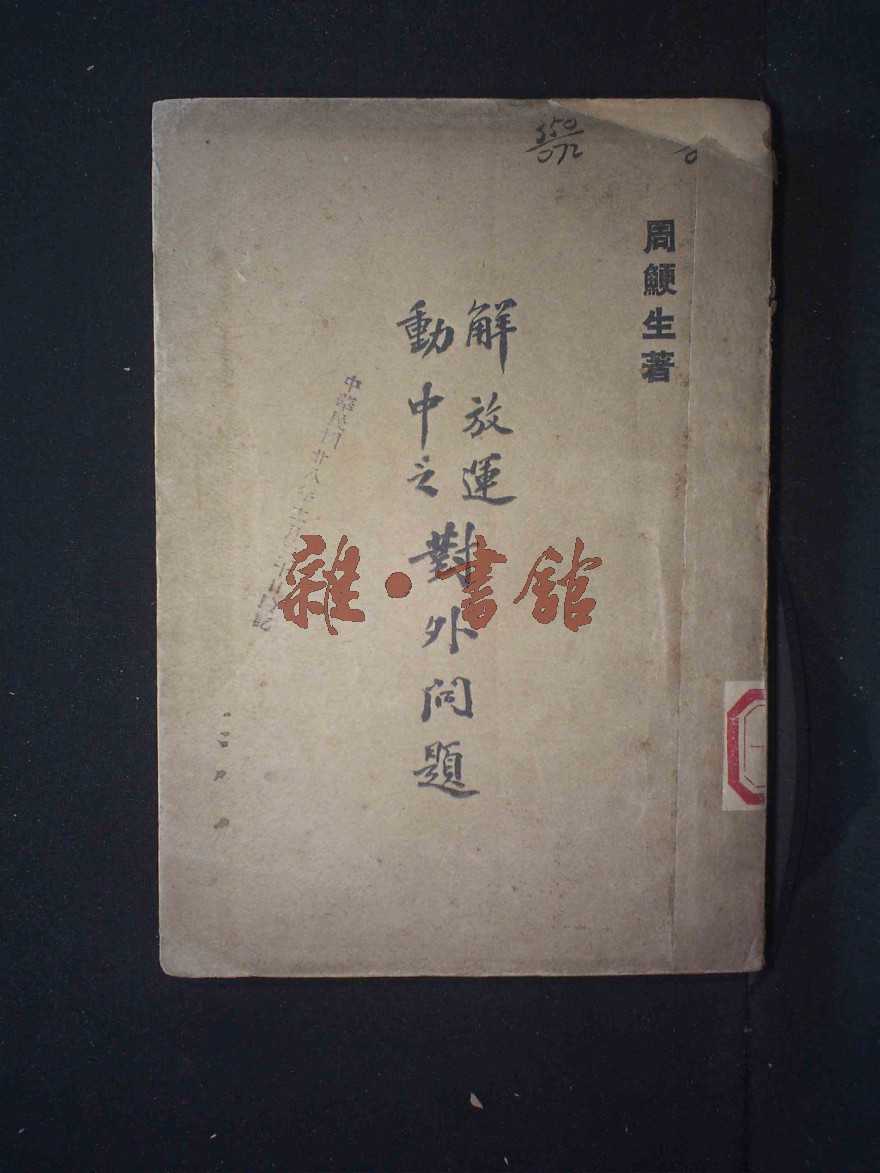 350
072
周鯁生著
解放運
動中之對外問題
中華民國廿八年
雜·書館